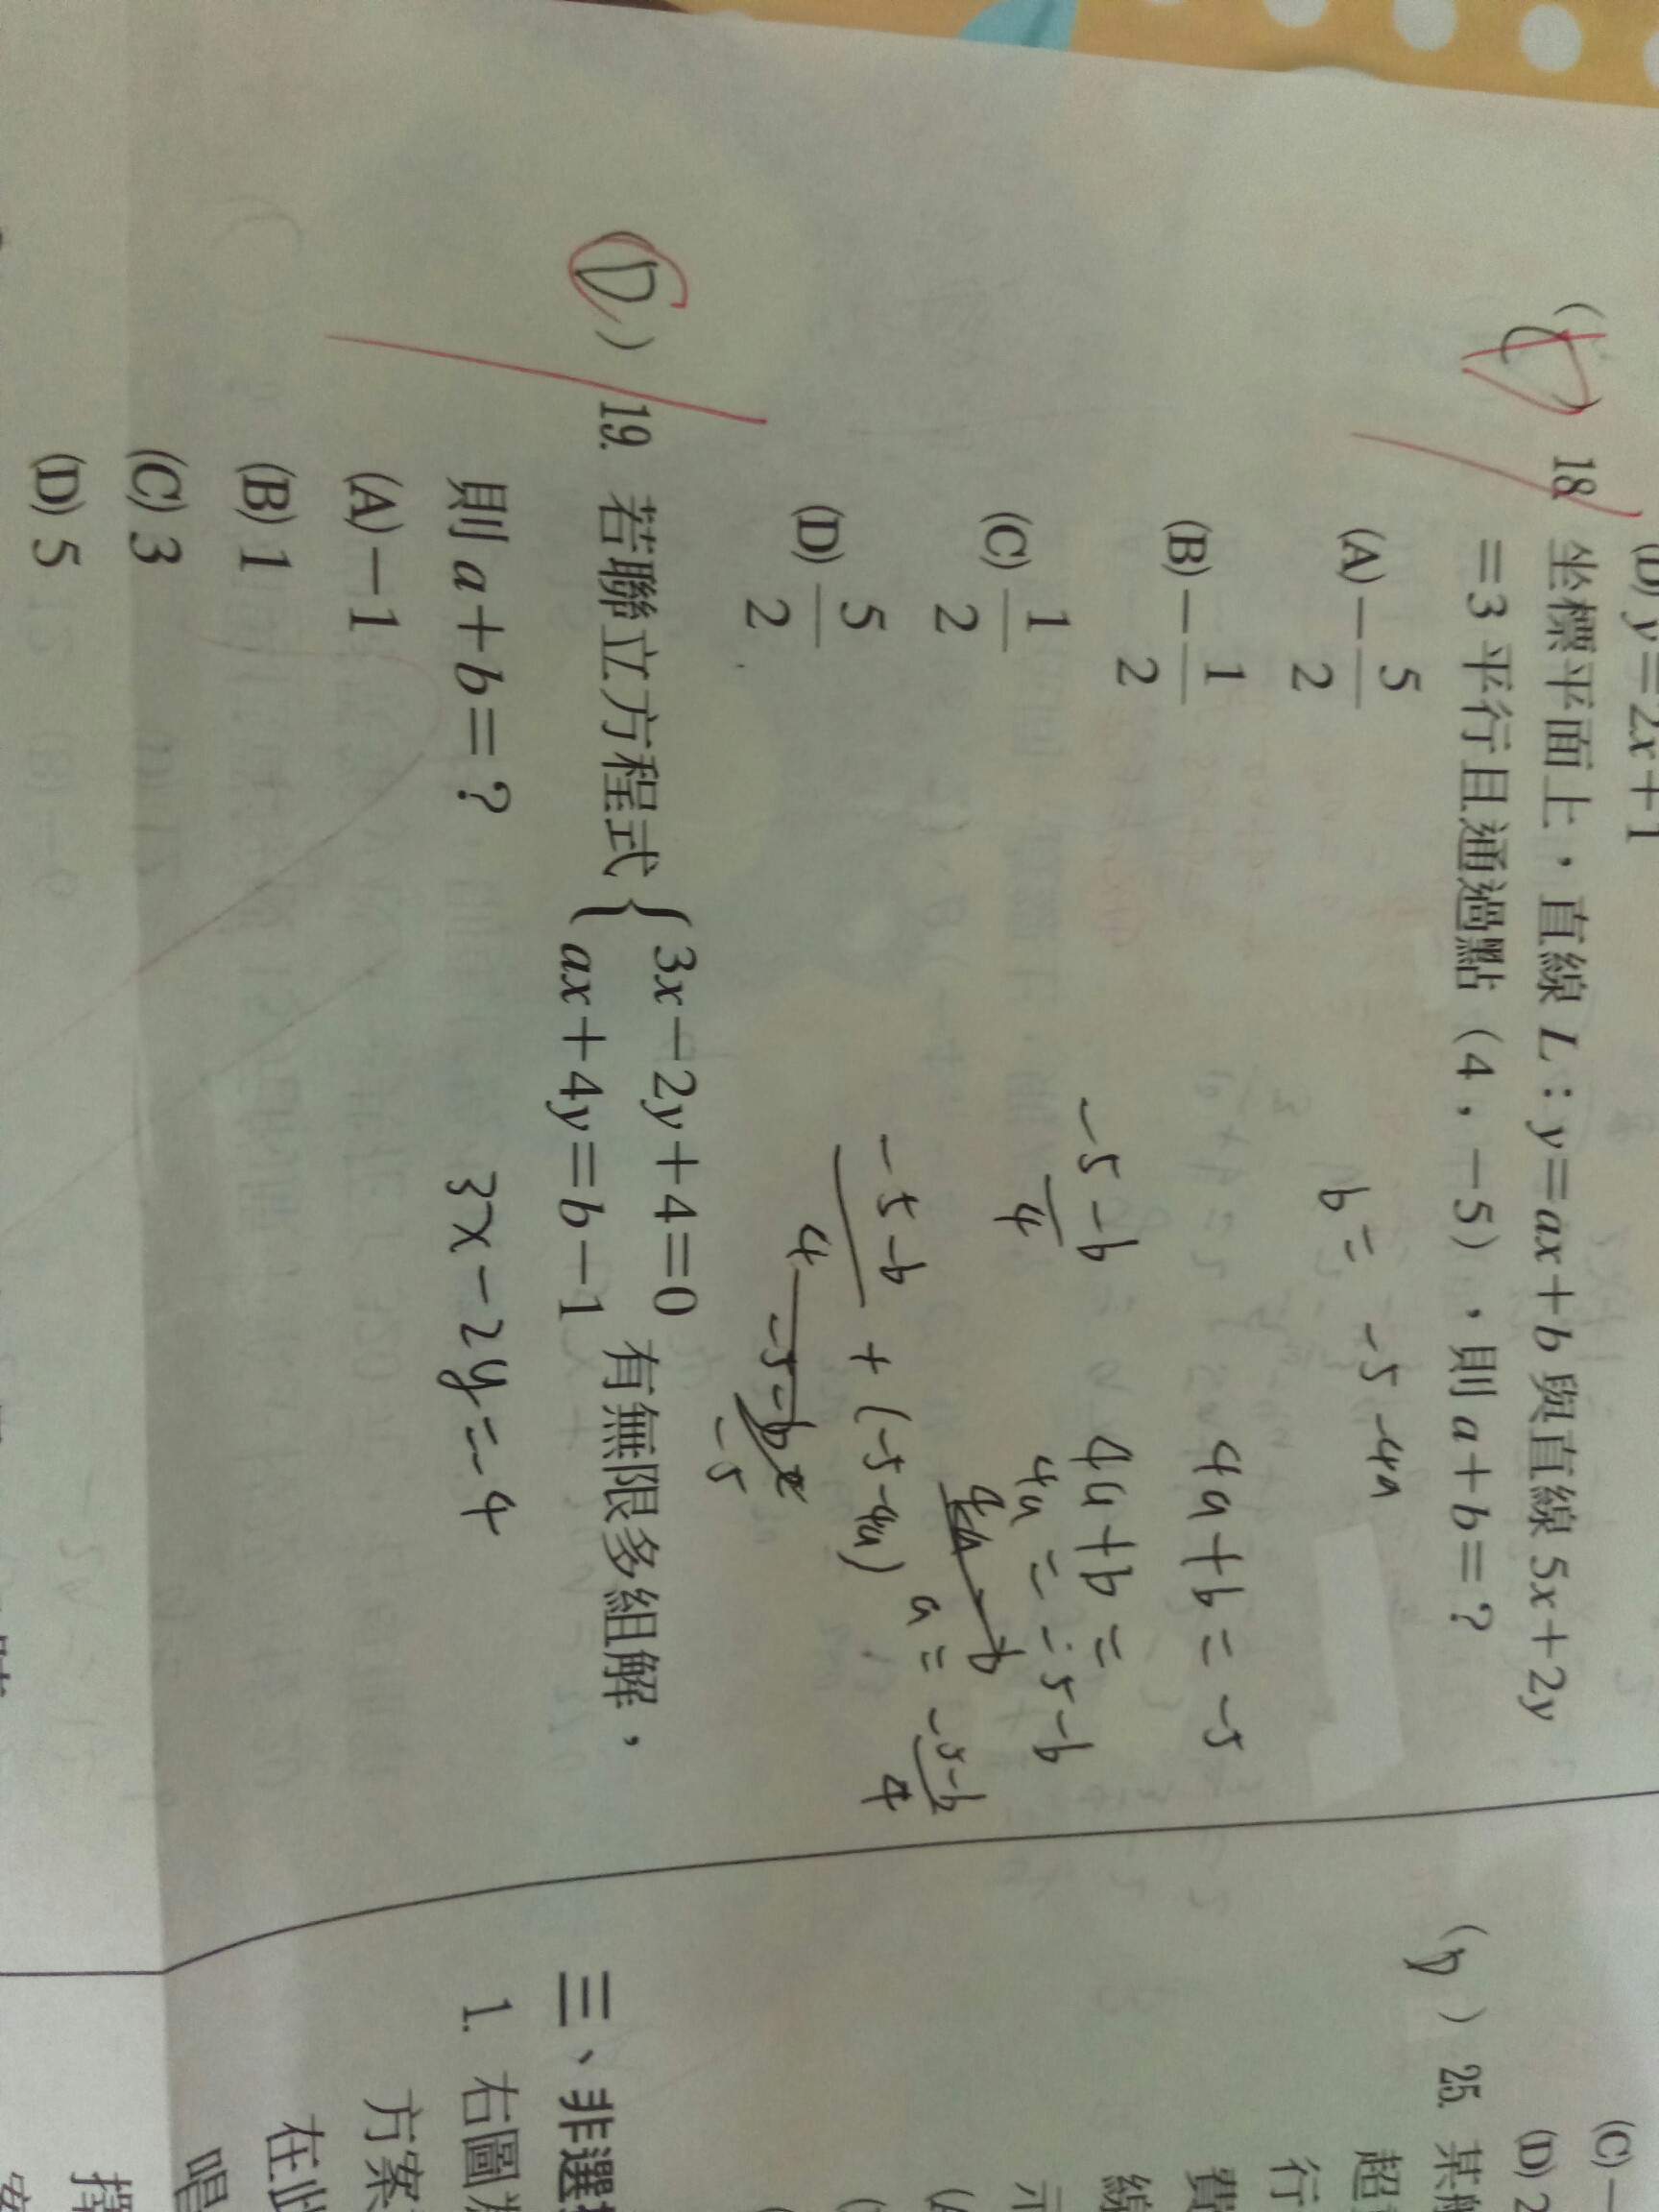 (D) y=2x+1
18. 坐標平面上，直線 L：y=ax+b 與直線 5x+2y
=3 平行且通過點（4，-5），則 a+b=？
(A) -5/2
(B) -1/2
(C) 1/2
(D) 5/2
b= -5-4a
4a+b=-5
4a+b=
4a=-5-b
a= -5-b/4
-5-b/4
-5-b/4 + (-5-4a)
-5
(D) 19. 若聯立方程式 { 3x-2y+4=0
ax+4y=b-1 有無限多組解，
則 a+b=？
(A) -1
(B) 1
(C) 3
(D) 5
3x-2y=-4
(C) -
(D) 2
(D) 25. 某
超
行
費
線
三、非選
1. 右圖
方案
在此
唱